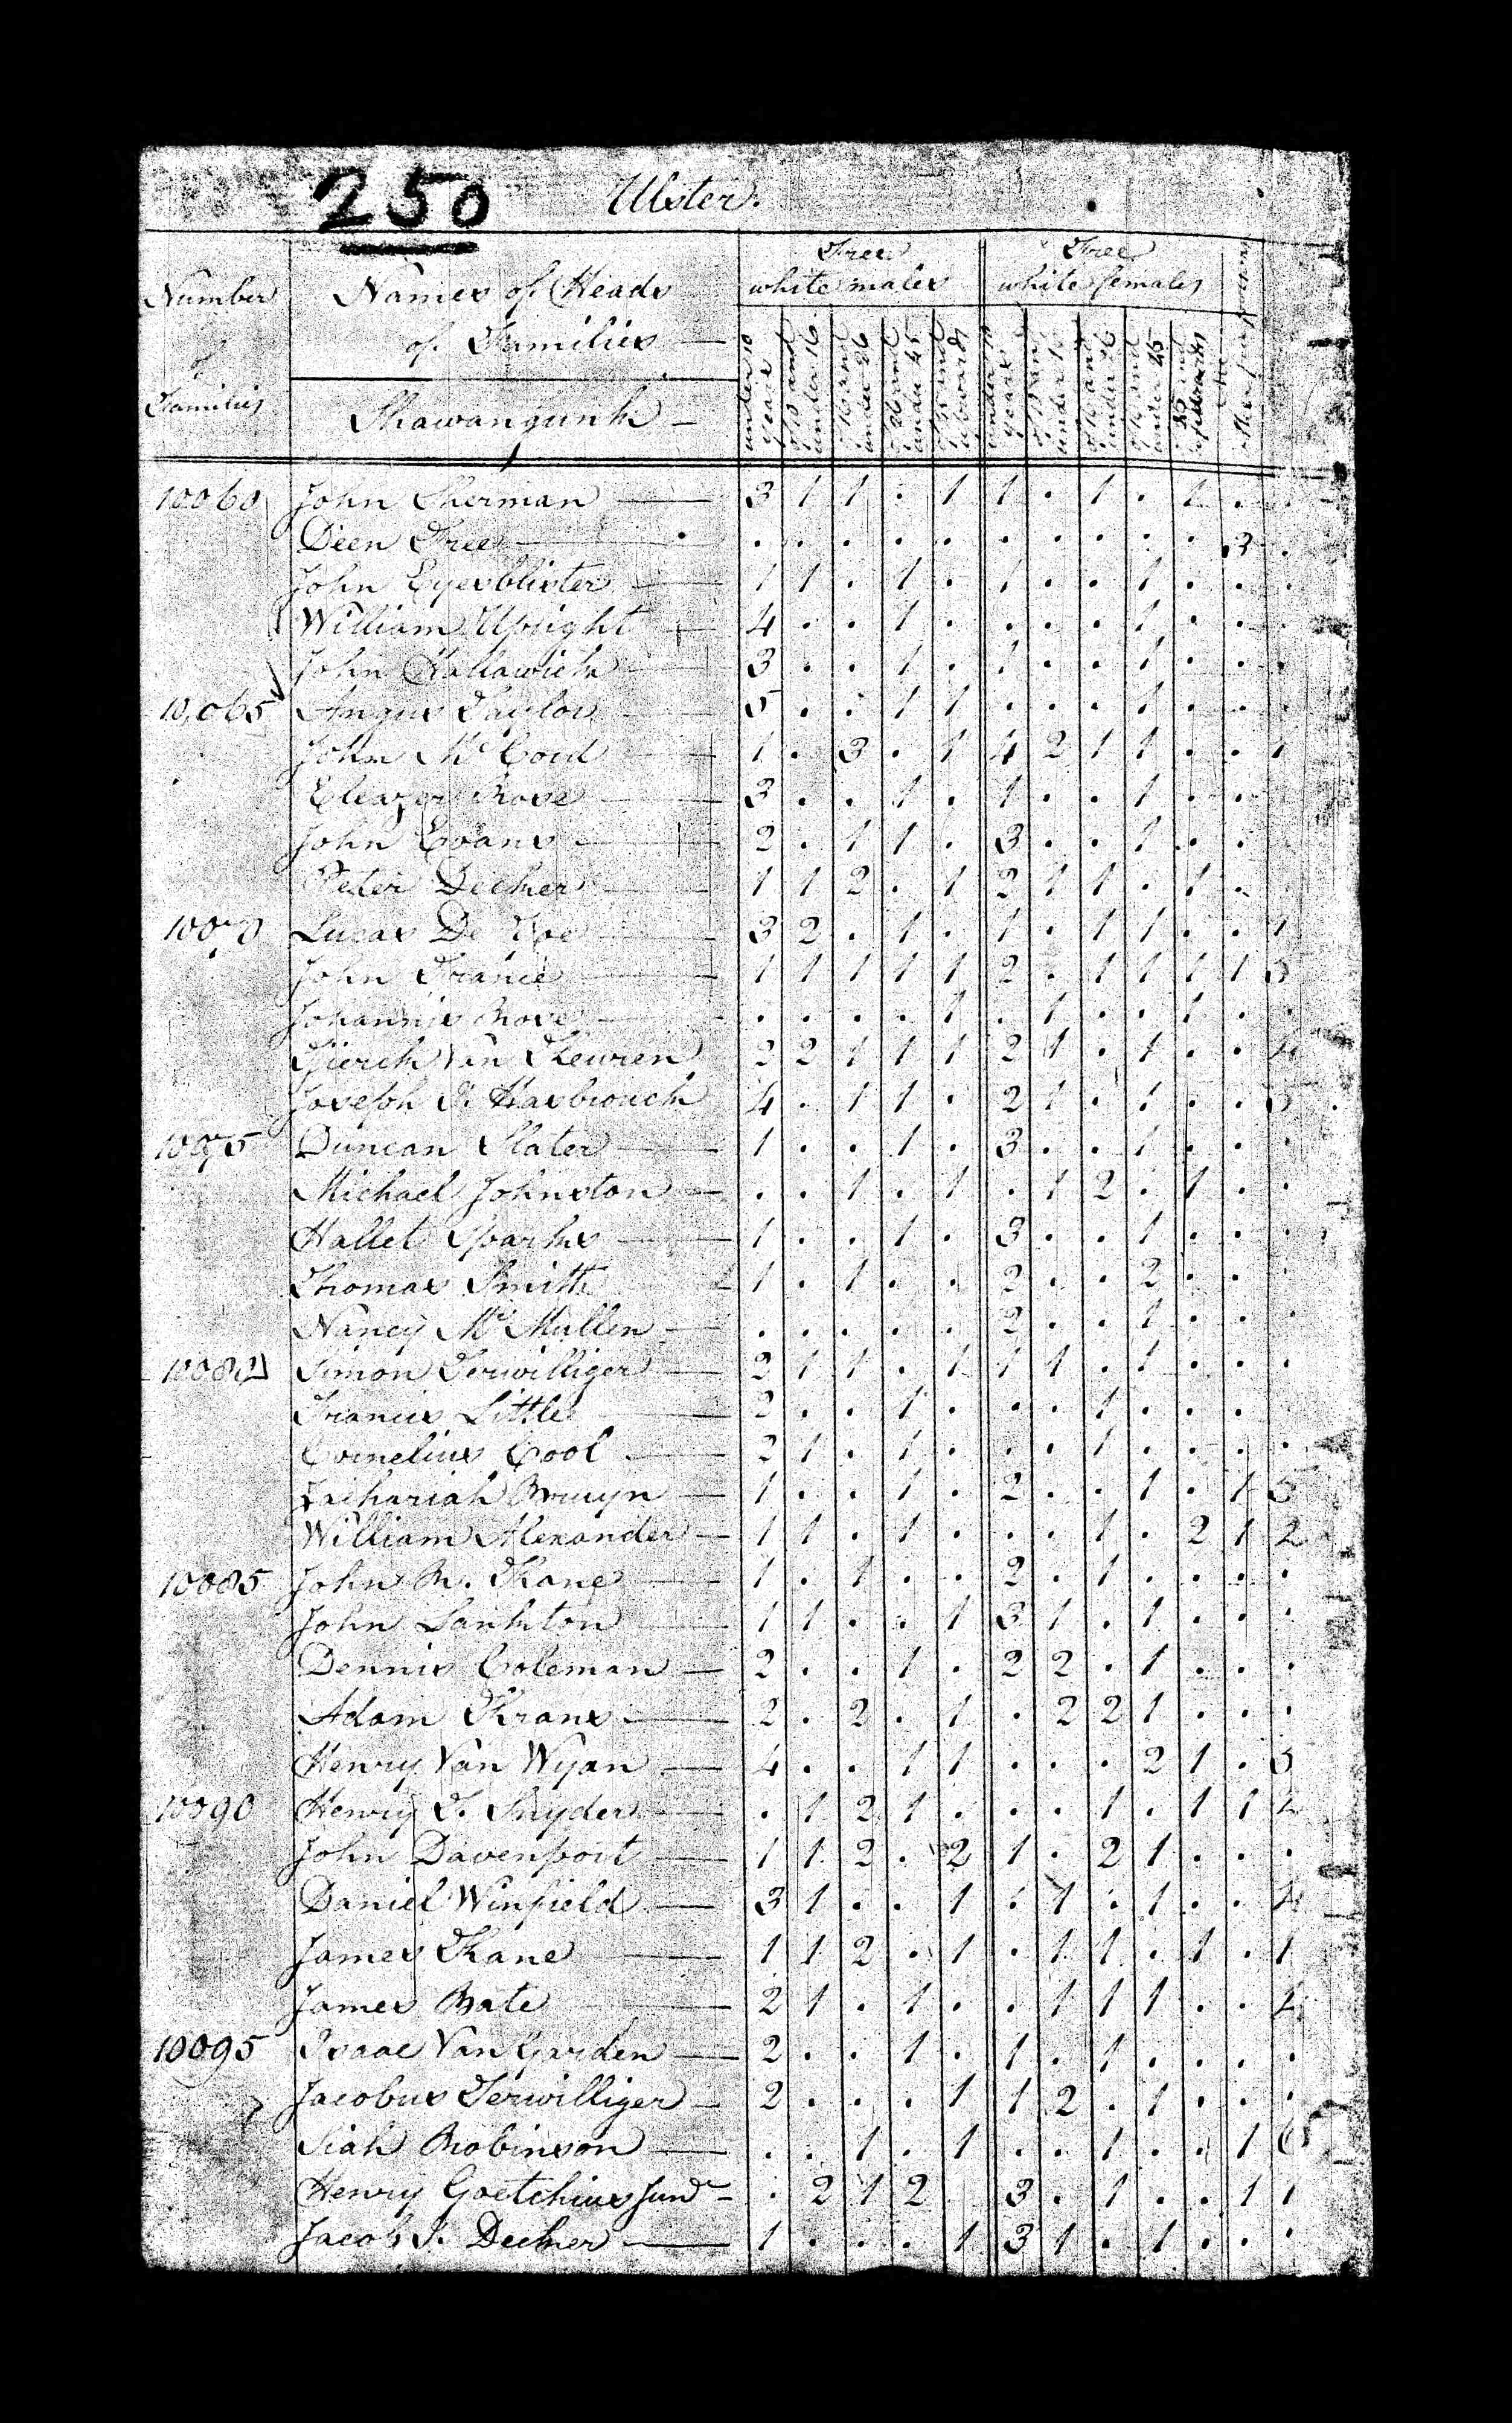 250 Ulster.
Number of Families
Names of Heads of Families
Shawangunk
Free white males
Free white females
under 10 years
of 10 and under 16
of 16 and under 26
of 26 and under 45
of 45 and upwards
under 10 years
of 10 and under 16
of 16 and under 26
of 26 and under 45
of 45 and upwards
10060 John Sherman 3 1 1 . 1 1 . 1 . 1 . .
Deen Free . . . . . . . . . . 3 .
John Eyesblister 1 1 . 1 . 1 . . 1 . . .
William Upright 4 . . 1 . . . . 1 . . .
John 3 . . 1 . 1 . . 1 . . .
10,065 Angus Taylor 5 . . 1 1 . . . 1 . . .
John Mc Cord 1 . 3 . 1 4 2 1 1 . . 1
Eleazer Rose 3 . . 1 . 1 . . 1 . .
John Evans 2 . 1 1 . 3 . . 1 . .
Peter Decker 1 1 2 . 1 2 1 1 . 1 .
10070 Lucas De Voe 3 2 . 1 . 1 . 1 1 . . 1
John France 1 1 1 1 1 2 . 1 1 1 1 3
Johannis Rose . . . . 1 . 1 . . 1 .
Tjerck Van Keuren 2 2 1 1 1 2 1 . 1 . . 4
Joseph I. Hasbrouck 4 . 1 1 . 2 1 . 1 . .
10075 Duncan Slater 1 . . 1 . 3 . . 1 . . .
Michael Johnston . . 1 . 1 . 1 2 . 1 . .
Hallet Sparks 1 . . 1 . 3 . . 1 . . .
Thomas Smith 1 . 1 . . 2 . . 2 . .
Nancy Mc Mullen . . . . . 2 . . 1 . . .
Simon Terwilliger 2 1 1 . 1 1 1 . 1 . . .
Francis Little 2 . . 1 . . . 1 . . .
Cornelius Cool 2 1 . 1 . . . 1 . . . .
Zachariah Bruyn 1 . . 1 . 2 . . 1 . 1 5
William Alexander 1 1 . 1 . . . 1 . 2 1 2
10085 John R. Kane 1 . 1 . . 2 . 1 . . . .
John Lankton 1 1 . . 1 3 1 . 1 . . .
Dennis Coleman 2 . . 1 . 2 2 . 1 . . .
Adam Krans 2 . 2 . 1 . 2 2 1 . . .
Henry Van Wyan 4 . . 1 1 . . . 2 1 . 3
10090 Henry T. Snyder . 1 2 1 . . . 1 . 1 1 2
John Davenport 1 1 2 . 2 1 . 2 1 . . .
Daniel Winfield 3 1 . . 1 . 1 . 1 . . 4
James Kane 1 1 2 . 1 . 1 1 . 1 . 1
James Bate 2 1 . 1 . . 1 1 1 . . 4
10095 Isaac Van Garden 2 . . 1 . 1 . 1 . . . .
Jacobus Terwilliger 2 . . . 1 1 2 . 1 . . .
Siah Robinson . . 1 . 1 . . 1 . . 1 6
Henry Goetchius Junr . 2 1 2 3 . 1 . . 1 1
Jacob I. Decker 1 . . . 1 3 1 . 1 . . .